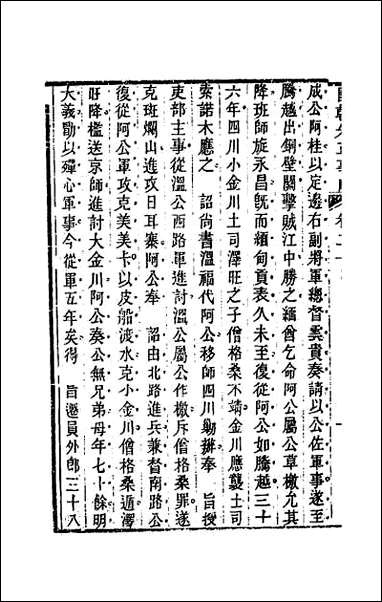 成公阿桂以定邊右副將軍總督雲貴奏請以公佐軍事遂至
騰越出銅壁關擊賊江中勝之緬酋乞命阿公屬公草檄允其
降班師旋永昌既而緬甸貢表久未至復從阿公如騰越三十
六年四川小金川土司澤旺之子僧格桑不靖金川應襲土司
索諾木應之 詔尚書溫福代阿公移師四川勦辦奉 旨授
吏部主事從溫公西路軍進討溫公屬公作檄斥僧格桑罪遂
克斑斕山進攻日耳寨阿公奉 詔由北路進兵兼督南路公
復從阿公軍攻克美美卡以皮船渡水克小金川僧格桑遁澤
旺降檻送京師進討大金川阿公奏公無兄弟母年七十餘明
大義勖以殫心軍事今從軍五年矣得 旨遷員外郎三十八